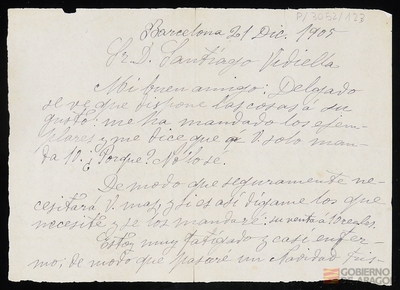 P/3054/123
Barcelona 21 Dic. 1905
Sr. D. Santiago Vidiella
Mi buen amigo: Delgado
se ve que dispone las cosas á su
gusto: me ha mandado los ejem-
plares y me dice que á V. solo man-
da 10. ¿Porque? No lo sé.
De modo que seguramente ne-
cesitará V. mas, y si es asi digame los que
necesite y se los mandaré: su venta á 10 reales.
Estoy muy fatigado y casi enfer-
mo; de modo que pasaré un Navidad tris-
GOBIERNO
DE ARAGON